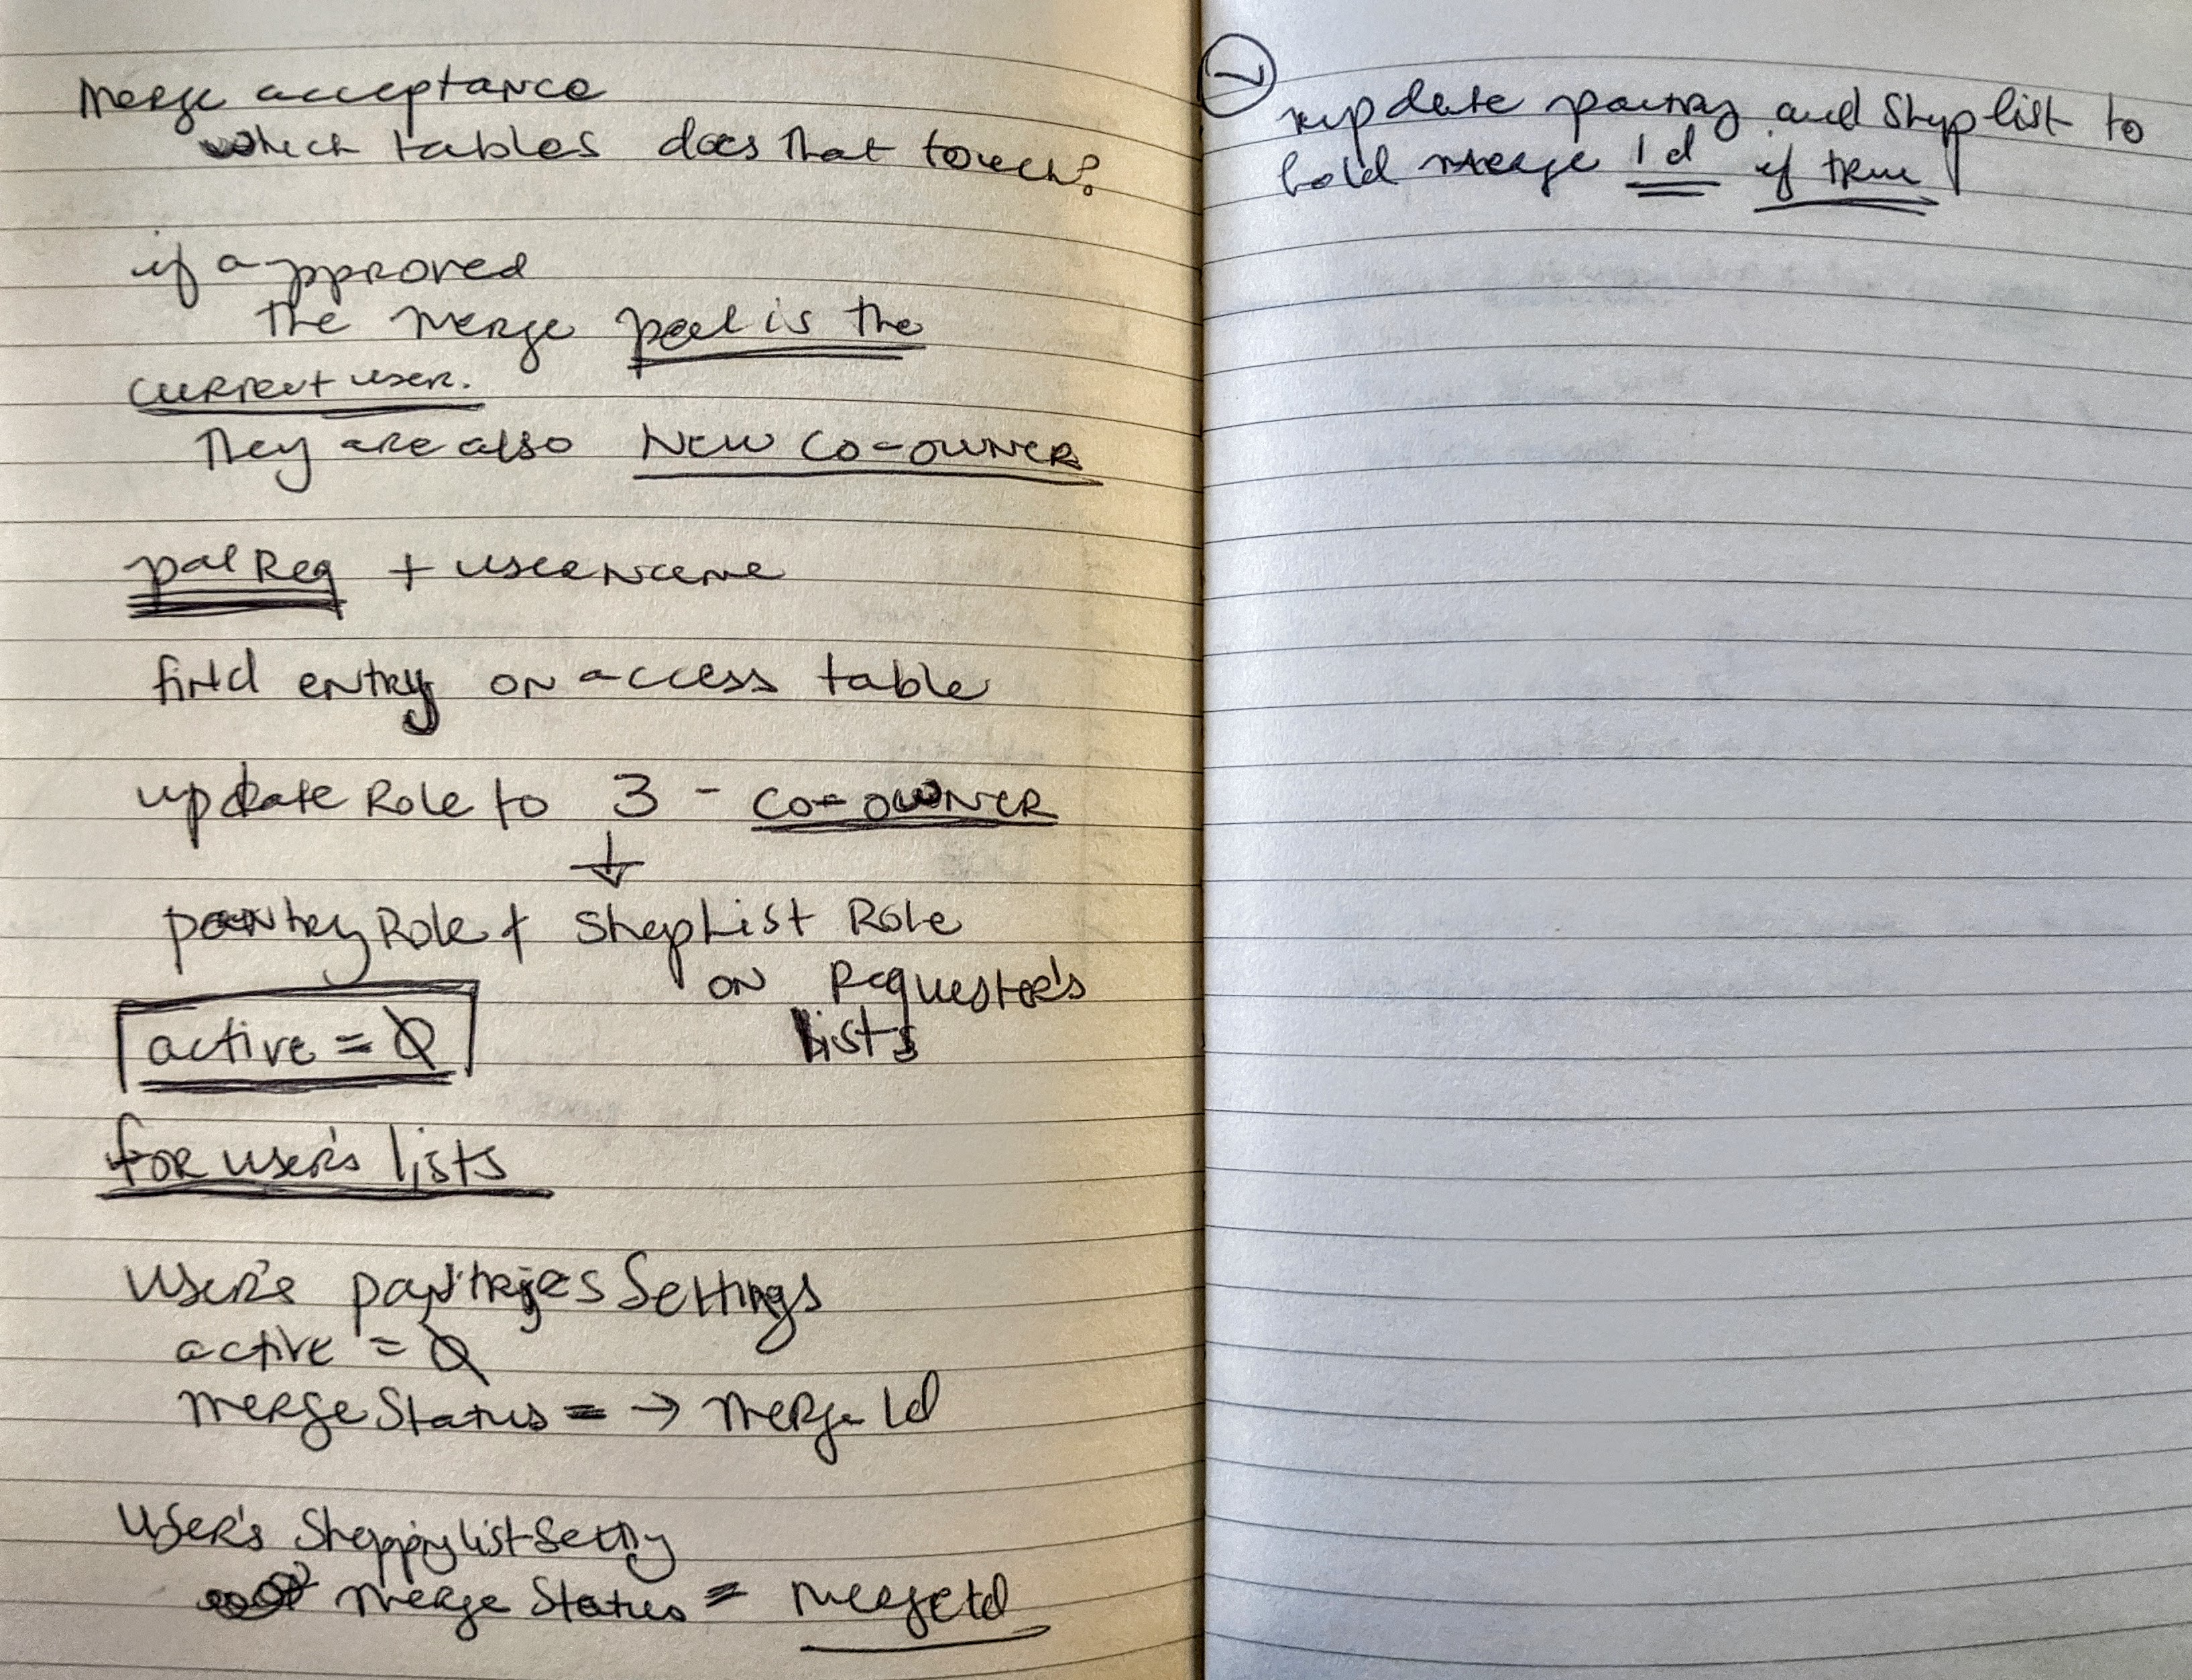 Merge acceptance
which tables does that touch?
if approved
the merge pal is the
current user.
They are also New Co-owner
palReq + userName
find entry on access table
update Role to 3 - co-owner
↓
pantryRole + ShopList Role
on Requester's
lists
active = 0
for user's lists
User's pantriesSettings
active = 0
mergeStatus = → mergeId
User's ShoppinglistSetting
merge Status = mergeId
update pantry and Shoplist to
hold merge Id if true